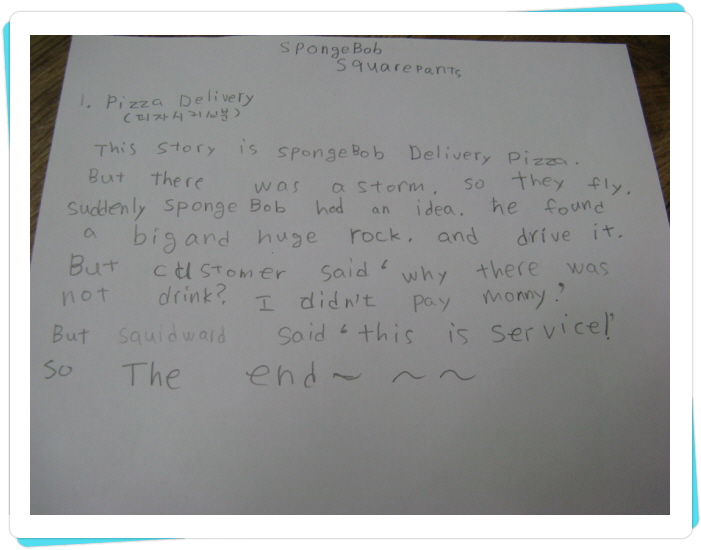 SpongeBob
Squarepants
1. Pizza Delivery
(피자시키신분)
This story is spongeBob Delivery Pizza.
But there was a storm, so they fly.
suddenly sponge Bob had an idea. he found
a big and huge rock. and drive it.
But customer said ‘why there was
not drink? I didn't pay monny.’
But squidward said ‘this is service!’
so The end~ ~ ~